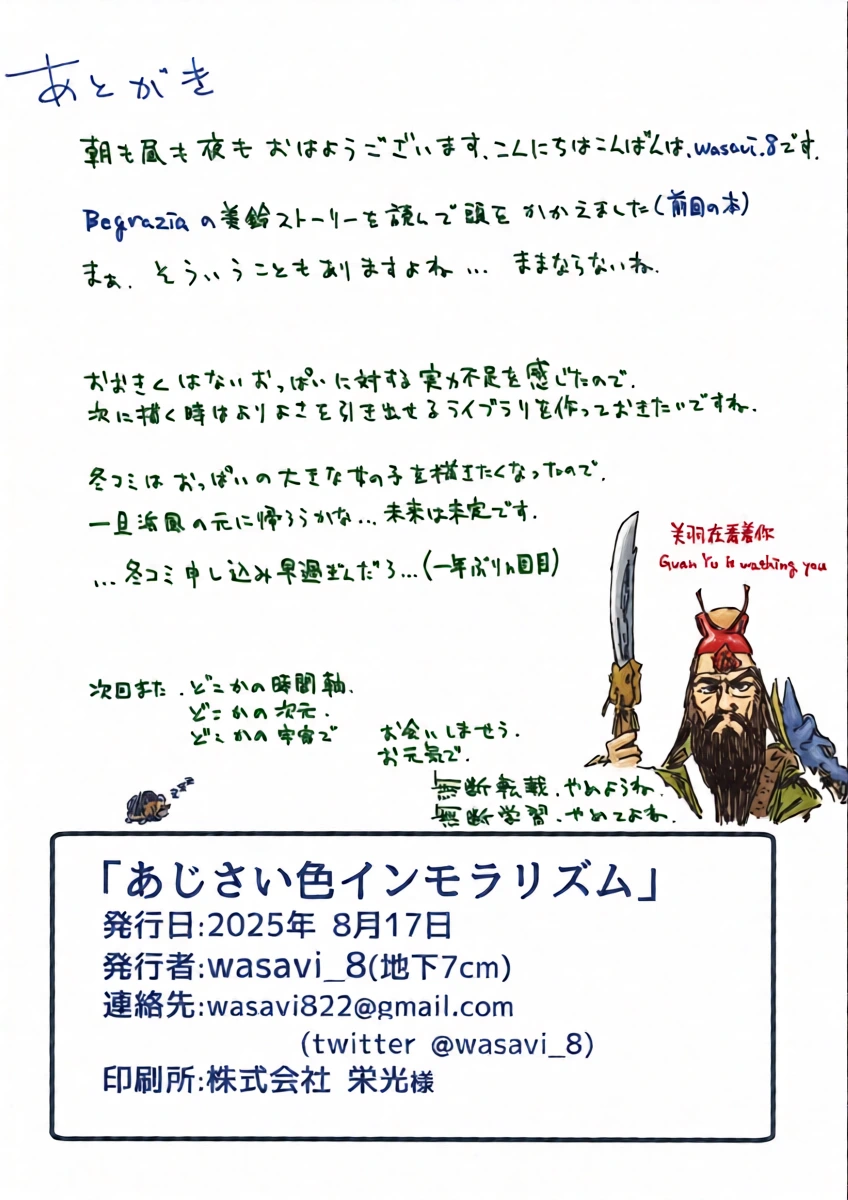 あとがき
朝も昼も夜も おはようございます、こんにちはこんばんは、wasavi_8です。
Begraziaの美鈴ストーリーを読んで頭を かかえました(前回の本)
まぁ、そういうこともありますよね… ままならないね。
おおきくはないおっぱいに対する実力不足を感じたので、
次に描く時はよりよさを引き出せるライブラリを作っておきたいですね。
冬コミはおっぱいの大きな女の子を描きたくなったので、
一旦浜風の元に帰ろうかな…未来は未定です。
…冬コミ申し込み早過ぎんだろ…(一年ぶりn回目)
美羽在看着你
Guan Yu is waching you
次回また、どこかの時間軸、
どこかの次元、
どこかの宇宙で
お会いしませう。
お元気で。
zzz
無断転載、やめようね。
無断学習、やめてよね。
「あじさい色インモラリズム」
発行日:2025年 8月17日
発行者:wasavi_8(地下7cm)
連絡先:wasavi822@gmail.com
(twitter @wasavi_8)
印刷所:株式会社 栄光様